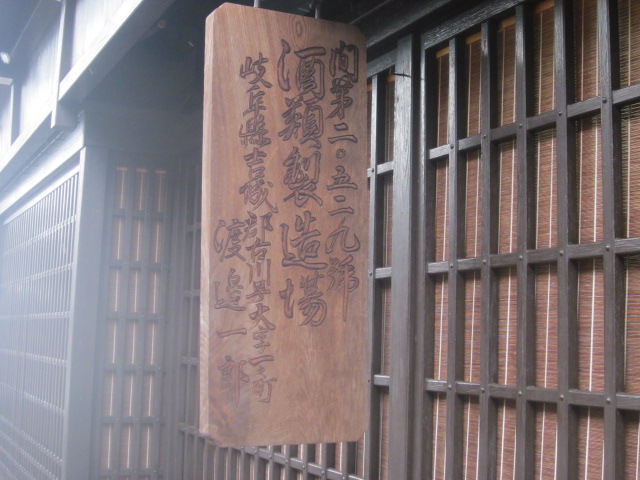 間第二〇五二九號
酒類製造場
岐阜縣吉城郡古川町大字一之町
渡邉一郎